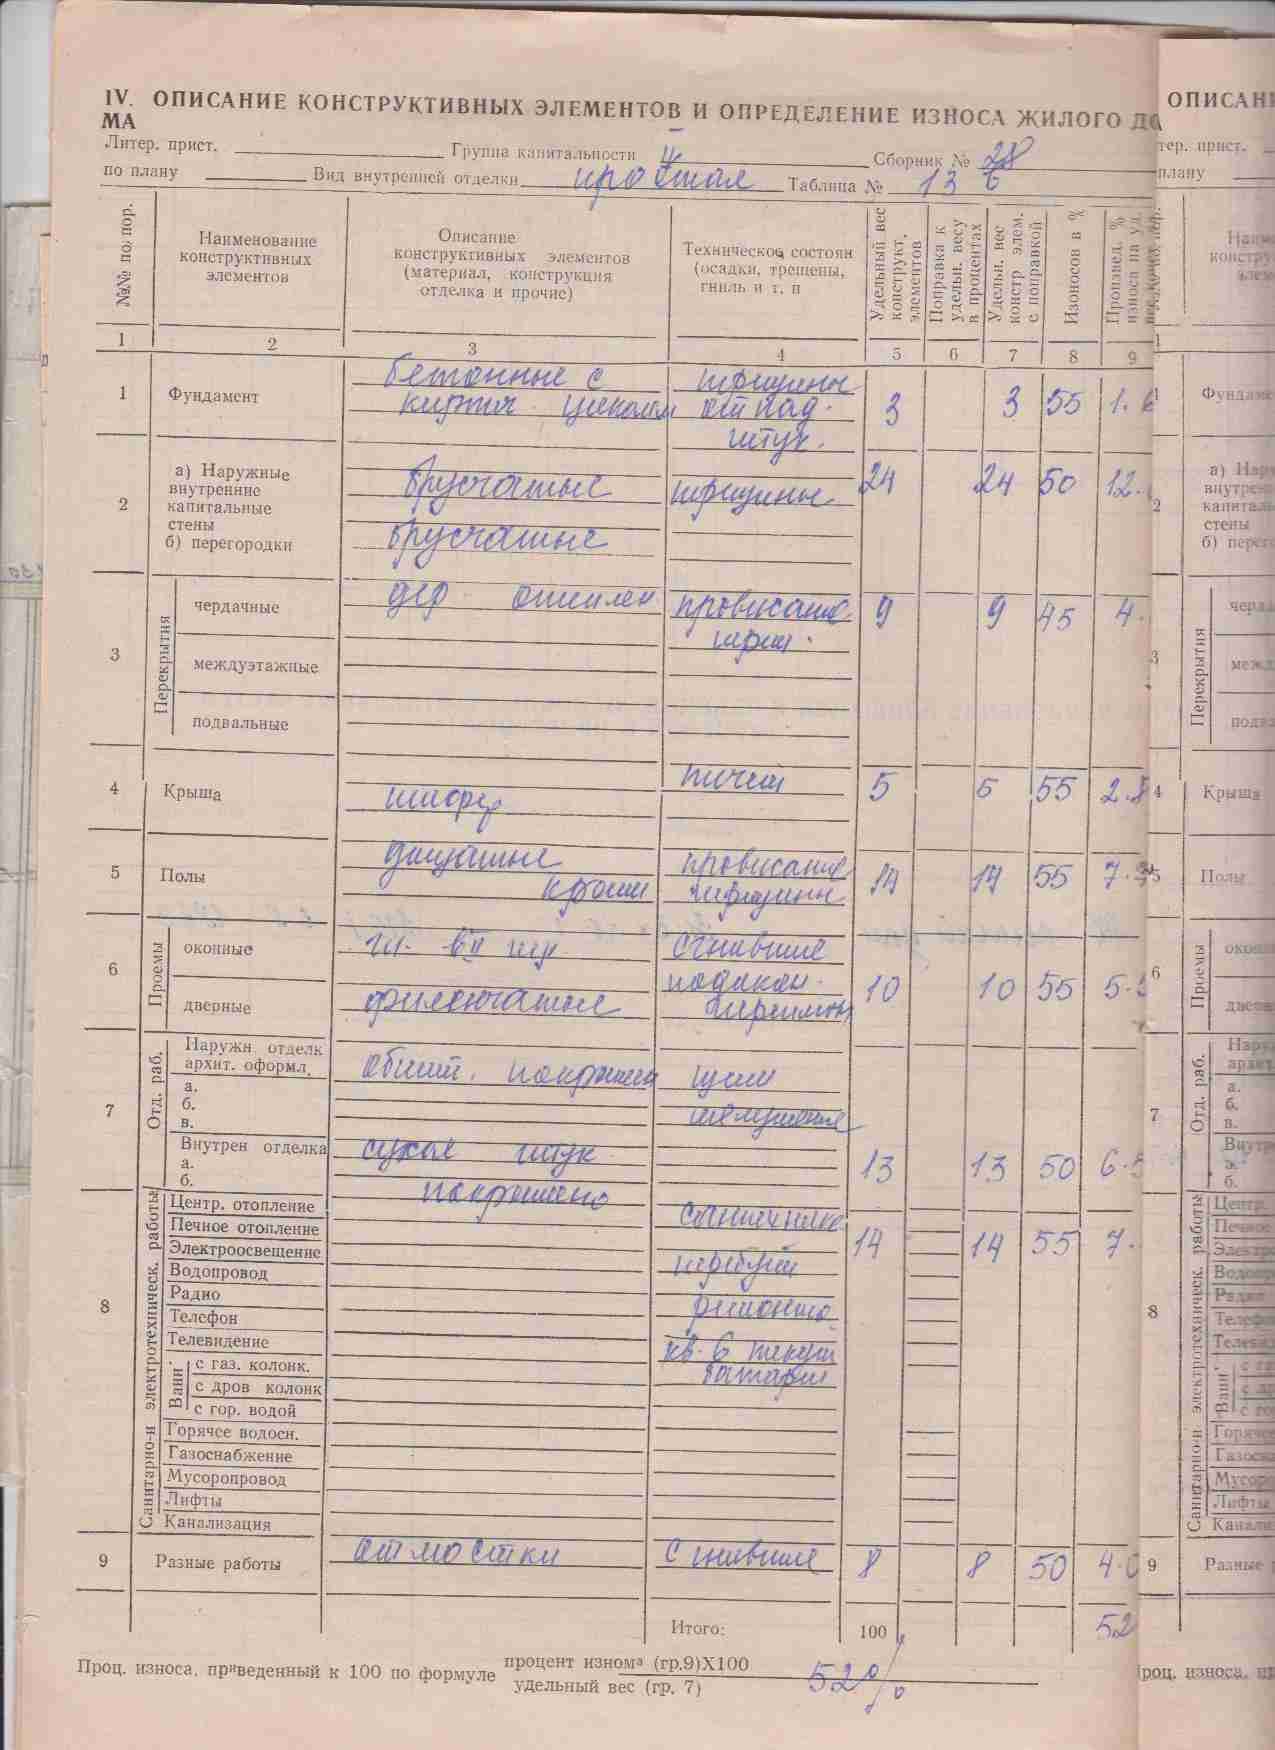 IV. ОПИСАНИЕ КОНСТРУКТИВНЫХ ЭЛЕМЕНТОВ И ОПРЕДЕЛЕНИЕ ИЗНОСА ЖИЛОГО ДО
МА
Литер. прист. Группа капитальности Сборник № 28
по плану Вид внутренней отделки простая Таблица № 13 б
№№ по пор.
Наименование конструктивных элементов
Описание конструктивных элементов (материал, конструкция отделка и прочие)
Техническое состоян (осадки, трещены, гниль и т. п
Удельный вес конструкт, элементов
Поправка к удельн. весу в процентах
Удельн. вес констр элем. с поправкой
Изоносов в %
Произвед. % износа на уд.
1 2 3 4 5 6 7 8 9
1 Фундамент бетонные с трещины 3 3 55 1.6
кирпич цоколем отпад.
штук.
2 а) Наружные внутренние капитальные стены брусчатые трещины 24 24 50 12.
б) перегородки брусчатые
3 Перекрытия
чердачные дер утеплен провисание 9 9 45 4.
трещ.
междуэтажные
подвальные
4 Крыша шифер течет 5 5 55 2.8
5 Полы дощатые провисание 14 14 55 7.
крашен трещины
6 Проемы
оконные сгнившие
подокон. 10 10 55 5.5
дверные филенчатые
7 Отд. раб.
Наружн отделк архит. оформл. обшит. покрашен щели
а.
б.
в. шелушение
Внутрен отделка сухая штук 13 13 50 6.5
а.
б. покрашено
8 Санитарно-и электротехническ. работы
Центр. отопление сантехника
Печное отопление 14 14 55 7.
Электроосвещение требует
Водопровод
Радио ремонта.
Телефон
Телевидение кв. 6 текут
Ванн. с газ. колонк. батареи
с дров колонк
с гор. водой
Горячее водосн.
Газоснабжение
Мусоропровод
Лифты
Канализация
9 Разные работы отмостки сгнившие 8 8 50 4.0
Итого: 100 52
Проц. износа, приведенный к 100 по формуле процент износа (гр.9)Х100 52%
удельный вес (гр. 7)
ОПИСАН
тер. прист.
плану
1
1 Фундаме
2 а) Нар
внутрен
капиталь
стены
б) перего
3 Перекрытия
черда
межд
подва
4 Крыша
5 Полы
6 Проемы
окон
две
7 Отд. раб.
Нару
архит.
а.
б.
в.
Внутр
а.
б.
8 Санитарно-и электротехническ. работы
Центр.
Печное
Электр
Водопр
Радио
Телефо
Телеви
Ванн.
с га
с д
с го
Горяче
Газосн
Мусоро
Лифты
Канали
9 Разные р
роц. износа, пр